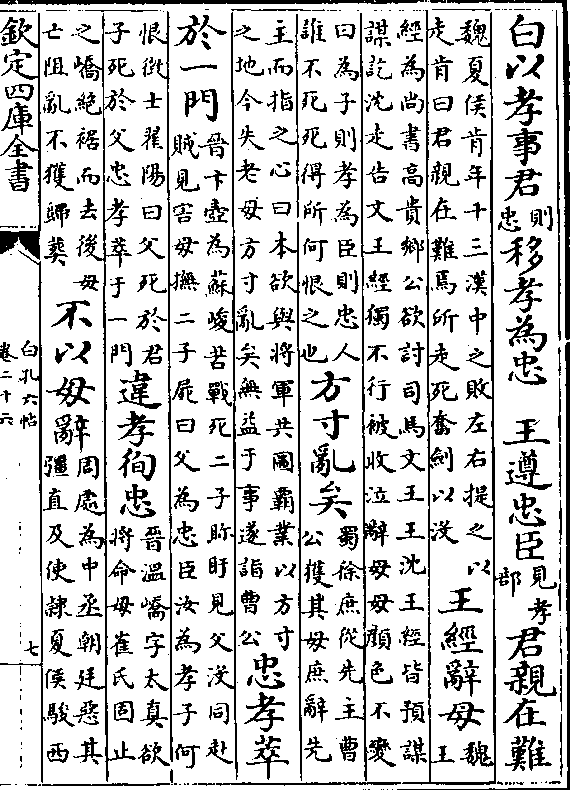 白以孝事君則忠移孝為忠　王遵忠臣見孝部君親在難
魏夏侯肯年十三漢中之敗左右提之以走肯曰君親在難焉所走死奮劍以沒　王經辭母魏王
經為尚書高貴鄉公欲討司馬文王王沈王經皆預謀謀訖沈走告文王經獨不行被收泣辭母母顏色不變
曰為子則孝為臣則忠人誰不死死得所何恨之也方寸亂矣蜀徐庶從先主曹公獲其母庶辭先
主而指之心曰本欲與將軍共圖霸業以方寸之地今失老母方寸亂矣無益于事遂詣曹公忠孝萃
於一門晉卞壼為蘇峻苦戰死二子眕盱見父沒同赴賊見害母撫二子屍曰父為忠臣汝為孝子何
恨徴士翟陽曰父死於君子死於父忠孝萃于一門違孝徇忠晉溫嶠字太真欲將命母崔氏固止
之嶠絕裾而去後母亡阻亂不獲歸葬　不以母辭周處為中丞朝廷惡其彊直及使隷夏侯駿西
欽定四庫全書
白孔六帖
卷二十六
七